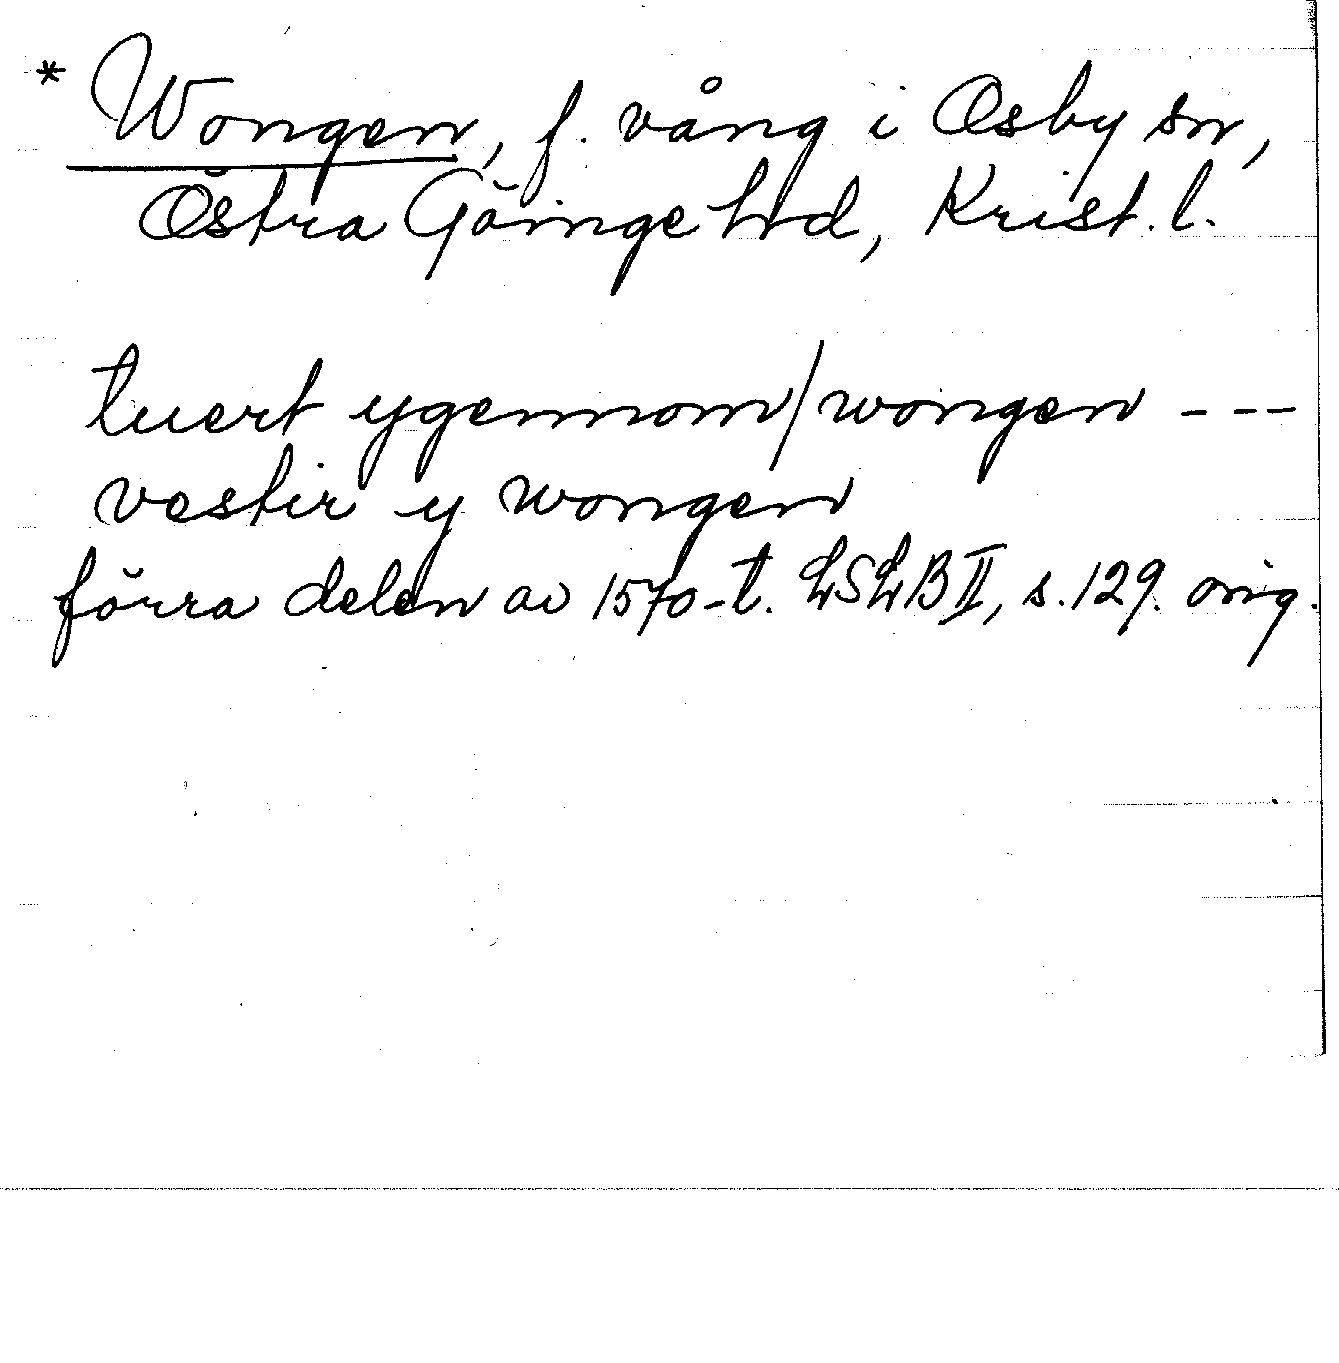 * Wongen, f. vång i Osby sn,
Östra Göinge hrd, Krist. l.
tuert ygennom/wongen ---
vestir y wongen
förra delen av 1570-t. LSLB II, s. 129. orig.